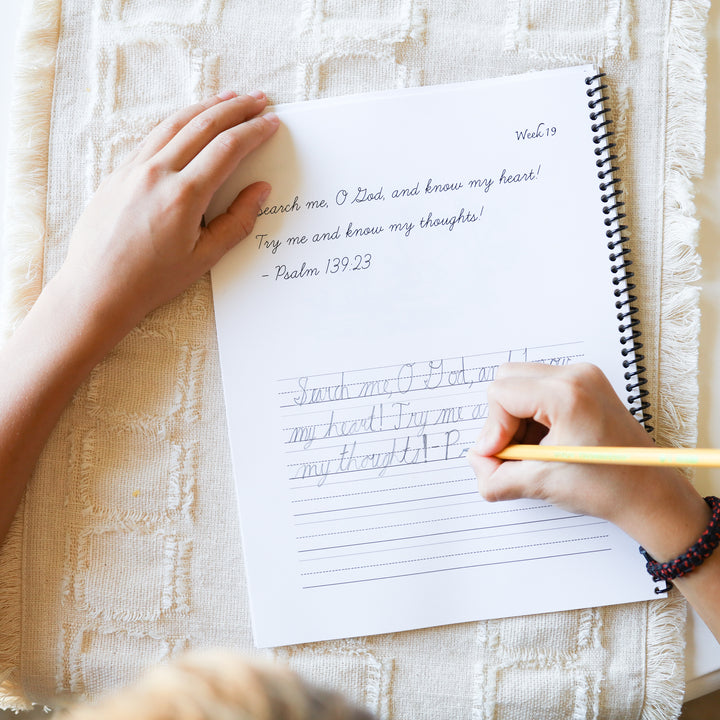 Week 19
Search me, O God, and know my heart!
Try me and know my thoughts!
- Psalm 139:23
Search me, O God, and know
my heart! Try me a
my thoughts! - P